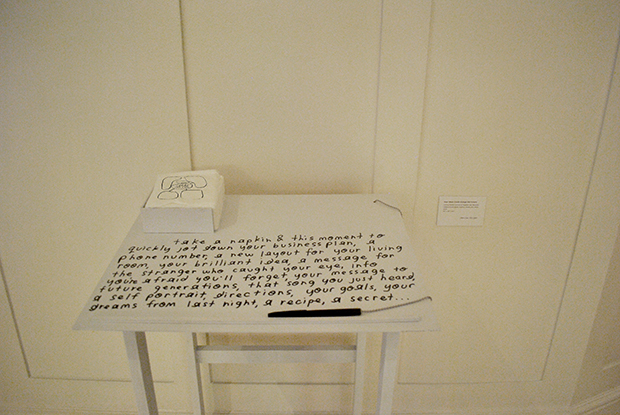 take a napkin & this moment to
quickly jot down your business plan, a
phone number, a new layout for your living
room, your brilliant idea, a message for
the stranger who caught your eye, info
you're afraid you'll forget, your message to
future generations, that song you just heard,
a self portrait, directions, your goals, your
dreams from last night, a recipe, a secret...